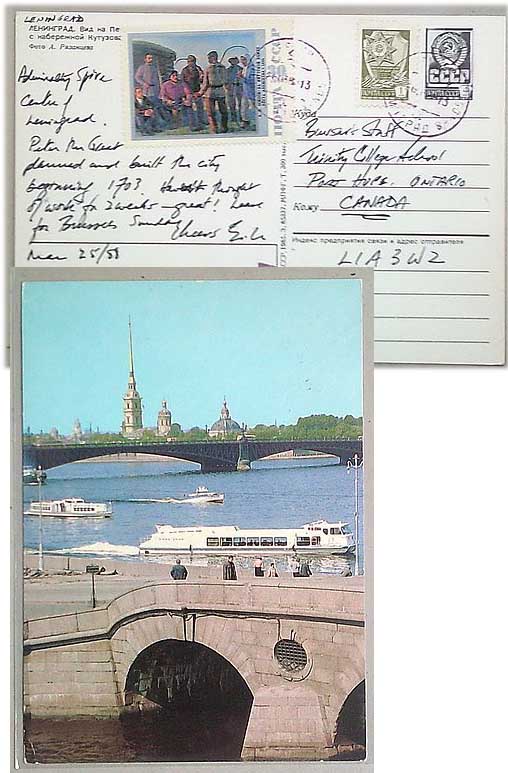 LENINGRAD
ЛЕНИНГРАД. Вид на Пе
с набережной Кутузов
Фото А. Рязанцева
Admiralty Spire
Centre of
Leningrad.
Peter the Great
planned and built the city
beginning 1703. thought
of work for 2 weeks - great! Leave
for Brussels Sunday
Cheers
Mar 25/88
ПОЧТА СССР
СССР
Куда
Bursar's Staff
Trinity College School
Port Hope. ONTARIO
Кому
CANADA
Индекс предприятия связи и адрес отправителя
L1A 3W2